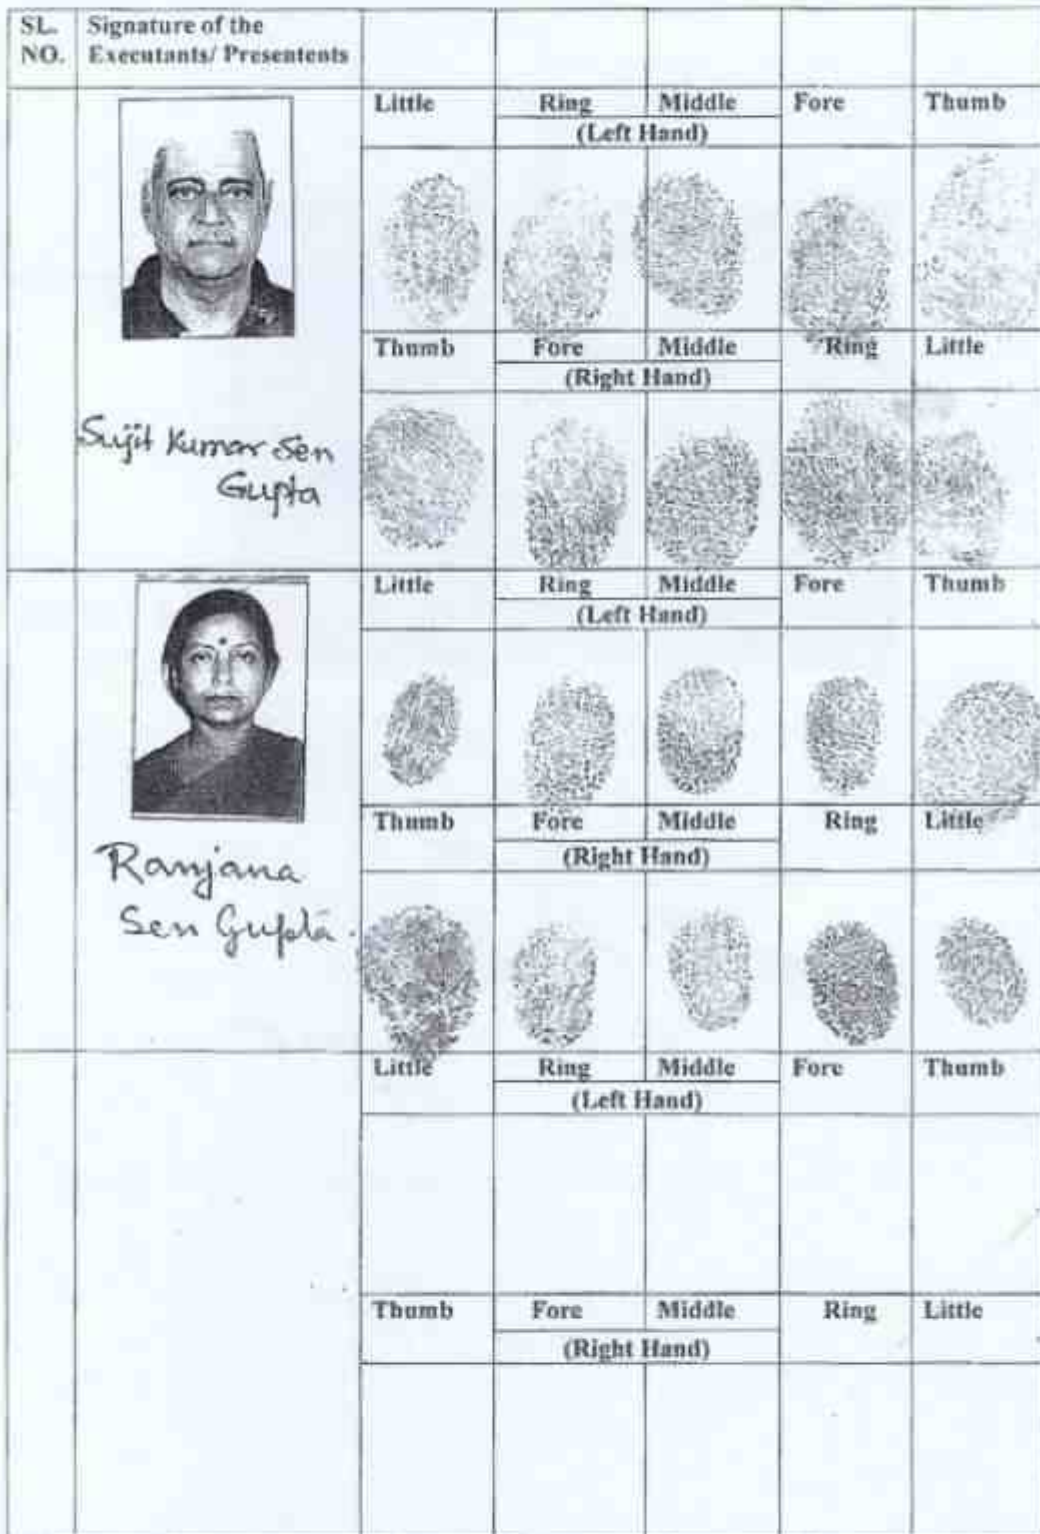 SL. Signature of the
NO. Executants/ Presentents
Little Ring Middle Fore Thumb
(Left Hand)
Thumb Fore Middle Ring Little
(Right Hand)
Sujit Kumar Sen
Gupta
Little Ring Middle Fore Thumb
(Left Hand)
Thumb Fore Middle Ring Little
(Right Hand)
Ranjana
Sen Gupta.
Little Ring Middle Fore Thumb
(Left Hand)
Thumb Fore Middle Ring Little
(Right Hand)